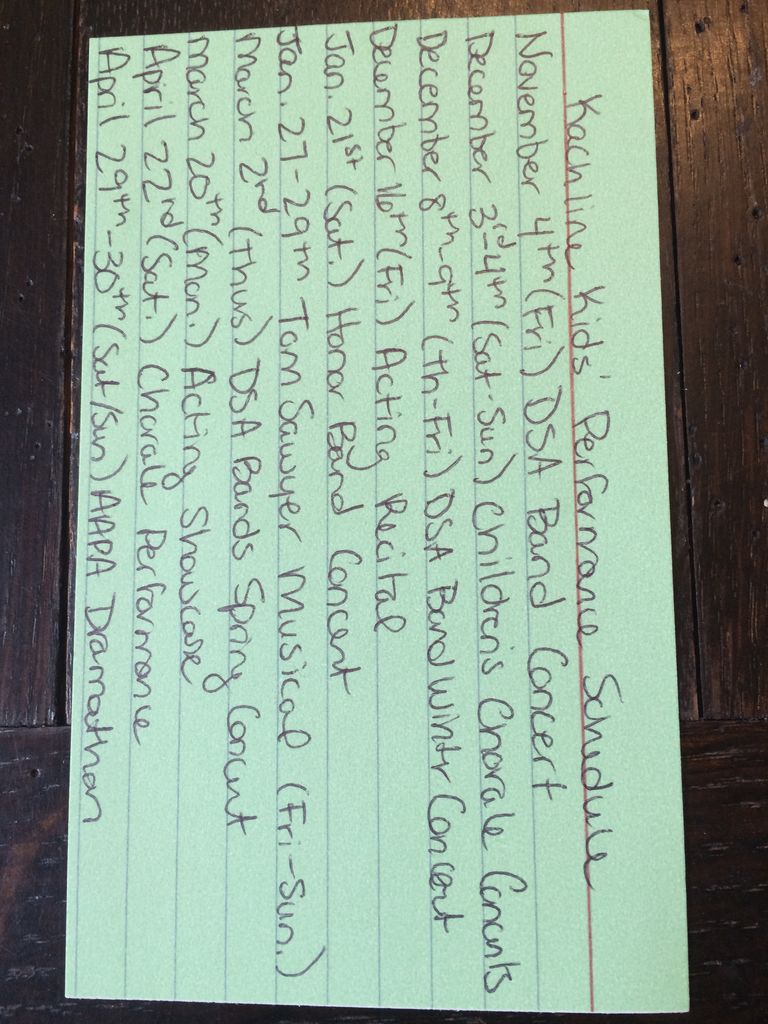 Kachline Kids' Performance Schedule
November 4th (Fri) DSA Band Concert
December 3rd-4th (Sat-Sun) Children's Chorale Concerts
December 8th-9th (Th-Fri) DSA Band Wintr Concert
December 16th (Fri) Acting Recital
Jan. 21st (Sat.) Honor Band Concert
Jan. 27-29th Tom Sawyer Musical (Fri-Sun.)
March 2nd (Thus) DSA Bands Spring Concert
March 20th (Mon.) Acting Showcase
April 22nd (Sat.) Chorale Performance
April 29th-30th (Sat/Sun) AAPA Dramathon